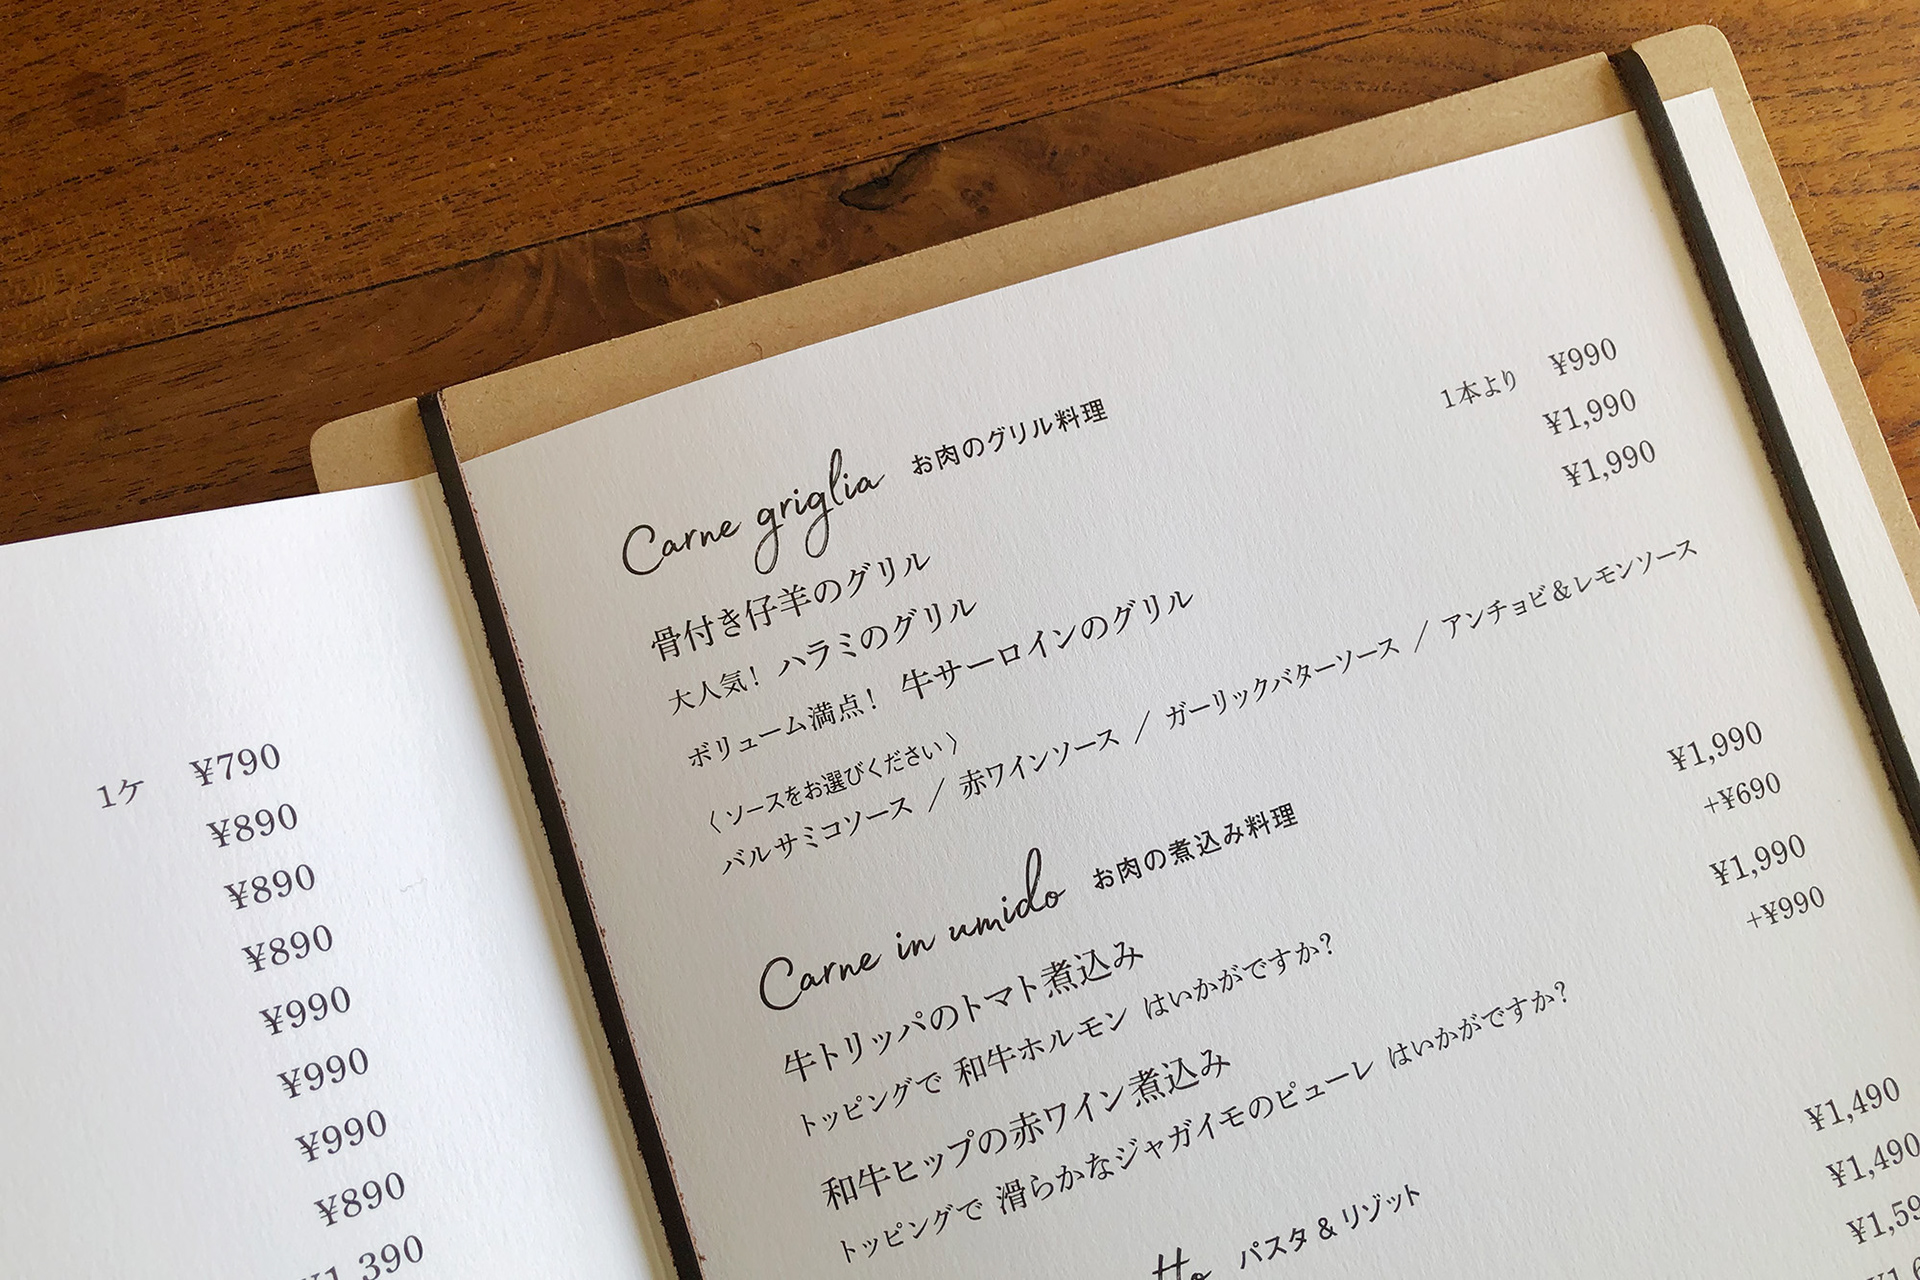 1ケ ¥790
¥890
¥890
¥890
¥990
¥990
¥990
¥890
¥1,390
Carne griglia お肉のグリル料理
骨付き仔羊のグリル 1本より ¥990
大人気！ ハラミのグリル ¥1,990
ボリューム満点！ 牛サーロインのグリル ¥1,990
〈ソースをお選びください〉
バルサミコソース / 赤ワインソース / ガーリックバターソース / アンチョビ＆レモンソース
Carne in umido お肉の煮込み料理
牛トリッパのトマト煮込み ¥1,990
トッピングで 和牛ホルモン はいかがですか？ +¥690
和牛ヒップの赤ワイン煮込み ¥1,990
トッピングで 滑らかなジャガイモのピューレ はいかがですか？ +¥990
パスタ & リゾット
¥1,490
¥1,490